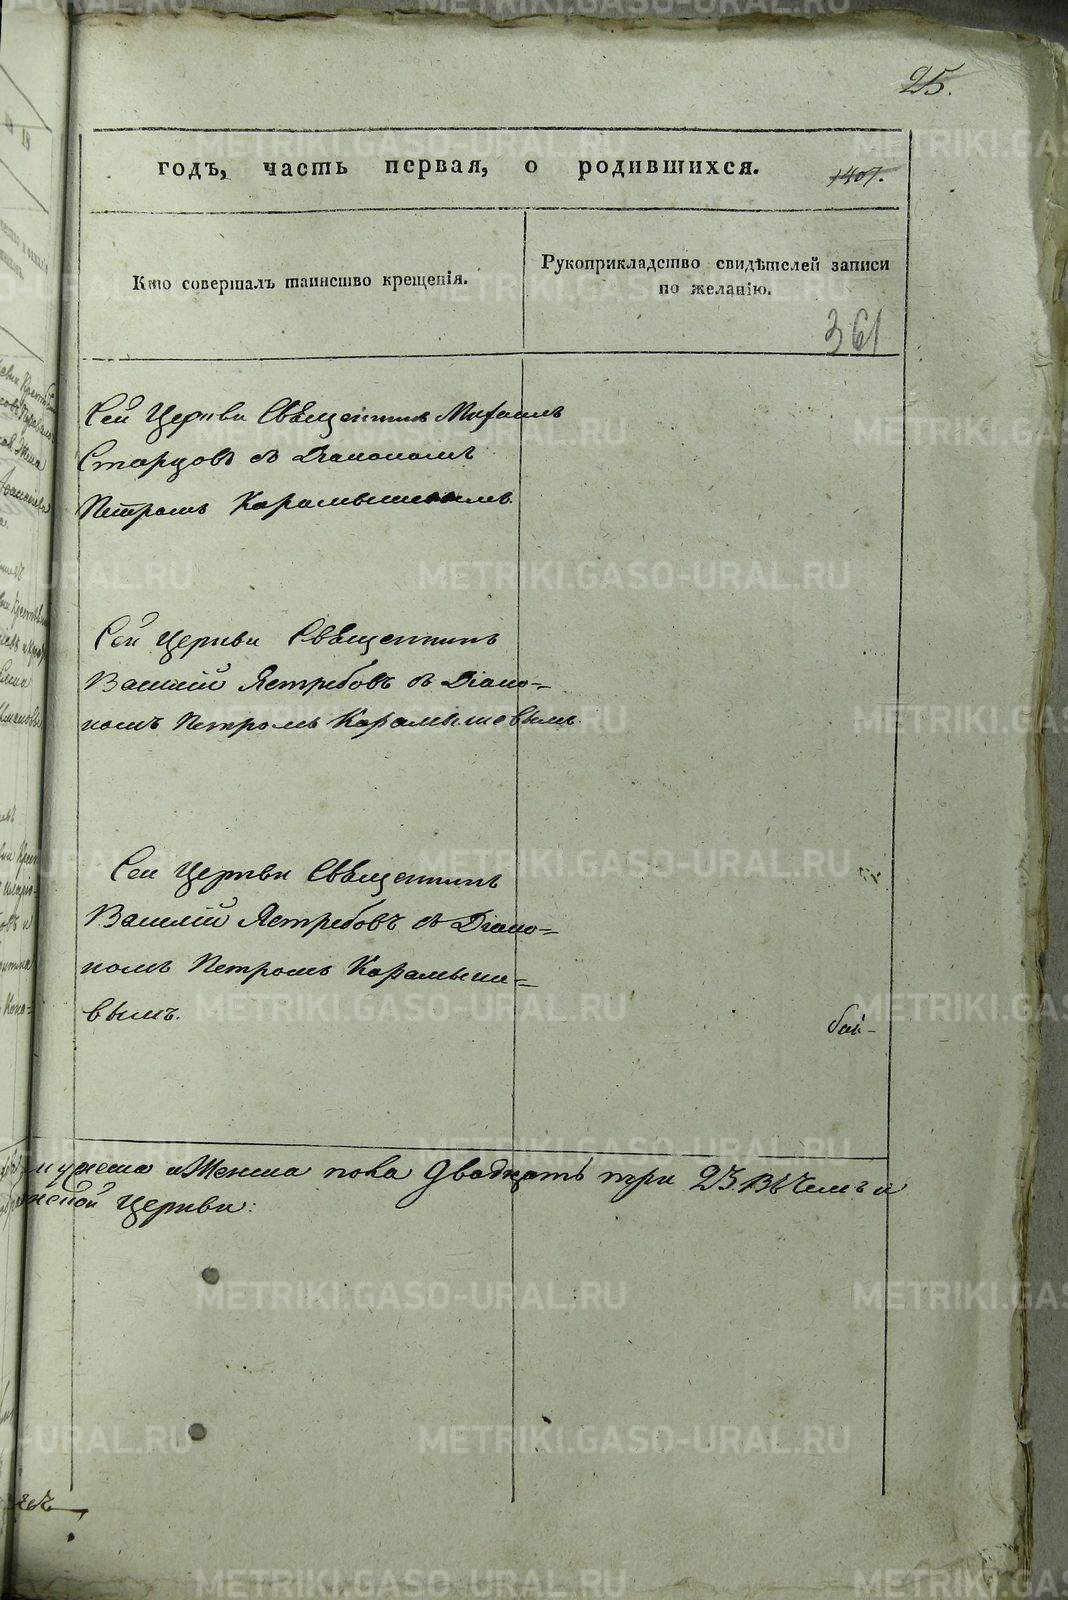 25.
годъ, часть первая, о родившихся.
1407.
Кто совершалъ таинство крещенія.
Рукоприкладство свидѣтелей записи
по желанію.
361
Сей Церкви Свѣщенникъ Михаилъ
Старцовъ съ Діакономъ
Петромъ Карамышевымъ
Сей Церкви Свѣщенникъ
Василій Ястребовъ съ Діако=
номъ Петромъ Карамышевымъ
Сей Церкви Свѣщенникъ
Василій Ястребовъ съ Діако=
номъ Петромъ Карамыше=
вымъ.
мужеска и Женска пола двадцать три 23. Въ чемъ и
Церкви:
METRIKI.GASO-URAL.RU